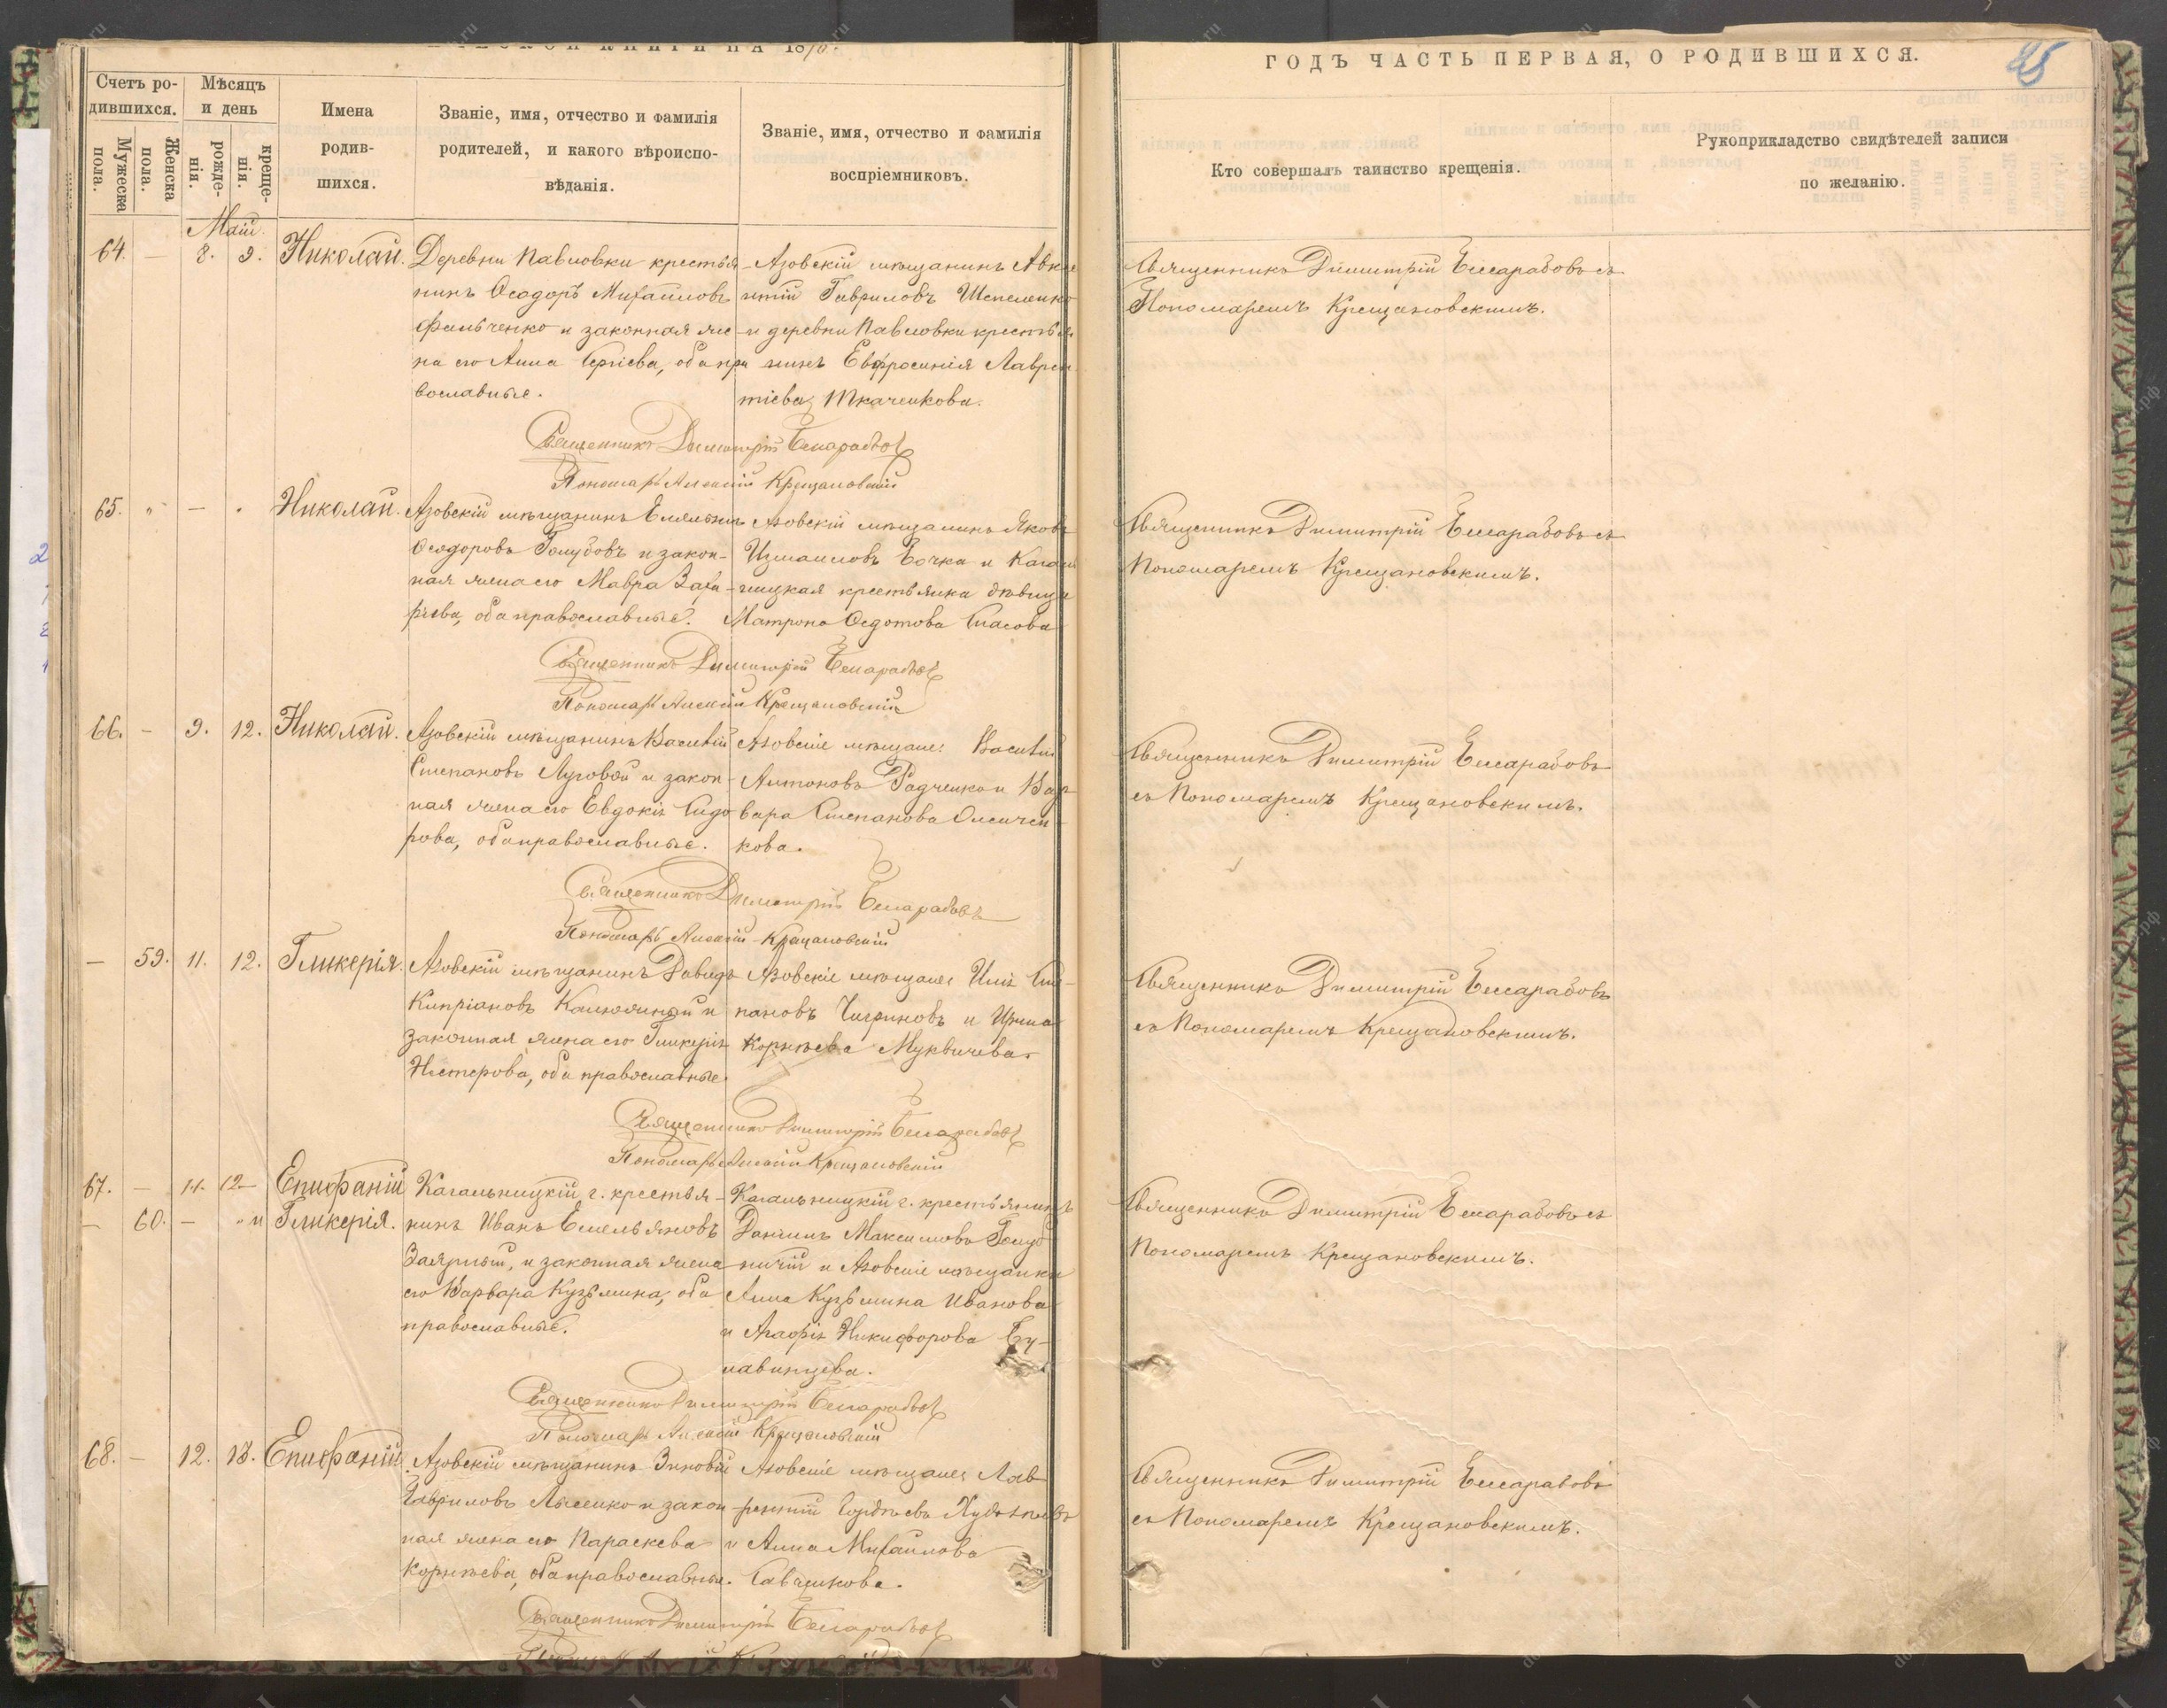 КНИГИ НА 1876.
ГОДЪ ЧАСТЬ ПЕРВАЯ, О РОДИВШИХСЯ.
Счетъ ро-
дившихся.
Мужеска пола.
Женска пола.
Мѣсяцъ
и день
рожде-
нія.
креще-
нія.
Имена
родив-
шихся.
Званіе, имя, отчество и фамилія
родителей, и какого вѣроиспо-
вѣданія.
Званіе, имя, отчество и фамилія
воспріемниковъ.
Кто совершалъ таинство крещенія.
Рукоприкладство свидѣтелей записи
по желанію.
Май.
64. — 8. 9. Николай.
Деревни Павловки крестья-
нинъ Ѳеодоръ Михаиловъ
Фильченко и законная же-
на его Анна Сергіева, оба пра
вославные.
Азовскій мѣщанинъ
Гавриловъ
и деревни Павловки крестья
Евфросинія Лаврен
тіева Ткаченкова.
Священникъ Димитрій Бессарабовъ съ
Пономаремъ Крещановскимъ.
Священникъ Димитрій Бессарабовъ
Пономарь Алексій Крещановскій
65. " — . Николай.
Азовскій мѣщанинъ Емельянъ
Ѳеодоровъ Голубовъ и закон-
ная жена его Мавра Заха-
рьева, оба православные.
Азовскій мѣщанинъ Яковъ
Измаиловъ Бочка и Кагаль
ницкая крестьянка дѣвица
Матрона Ѳедотова Власова
Священникъ Димитрій Бессарабовъ съ
Пономаремъ Крещановскимъ.
Священникъ Димитрій Бессарабовъ
Пономарь Алексій Крещановскій
66. — 9. 12. Николай.
Азовскій мѣщанинъ Василій
Степановъ Луговой и закон-
ная жена его Евдокія Сидо
рова, оба православные.
Азовскіе мѣщане: Василій
Антоновъ Радченко и Вар-
вара Степанова
кова.
Священникъ Димитрій Бессарабовъ
съ Пономаремъ Крещановскимъ.
Священникъ Димитрій Бессарабовъ
Пономарь Алексій Крещановскій
— 59. 11. 12. Гликерія.
Азовскій мѣщанинъ Давидъ
Кипріановъ и
законная жена его Гликерія
Нестерова, оба православные.
Азовскіе мѣщане: Илія
пановъ Чигриновъ и Ирина
Корнѣева Муквичева.
Священникъ Димитрій Бессарабовъ
съ Пономаремъ Крещановскимъ.
Священникъ Димитрій Бессарабовъ
Пономарь Алексій Крещановскій
67. — 11. 12 — Епифаній
— 60. — " и Гликерія.
Кагальницкій г. крестья-
нинъ Иванъ Емельяновъ
Заярный, и законная жена
его Варвара Кузьмина, оба
православные.
Кагальницкій г. крестьянинъ
Даніилъ Максимовъ Голуб
ничій и Азовскіе мѣщанки
Анна Кузьмина Иванова
и Агафія Никифорова Бу-
лавинцева.
Священникъ Димитрій Бессарабовъ съ
Пономаремъ Крещановскимъ.
Священникъ Димитрій Бессарабовъ
Пономарь Алексій Крещановскій
68. — 12. 13. Епифаній
Азовскій мѣщанинъ Зиновій
Гавриловъ Лысенко и закон-
ная жена его Параскева
Корнѣева, оба православные.
Азовскіе мѣщане: Лав
рентій Гордѣевъ
и Анна Михаилова
Савченкова.
Священникъ Димитрій Бессарабовъ
съ Пономаремъ Крещановскимъ.
Священникъ Димитрій Бессарабовъ